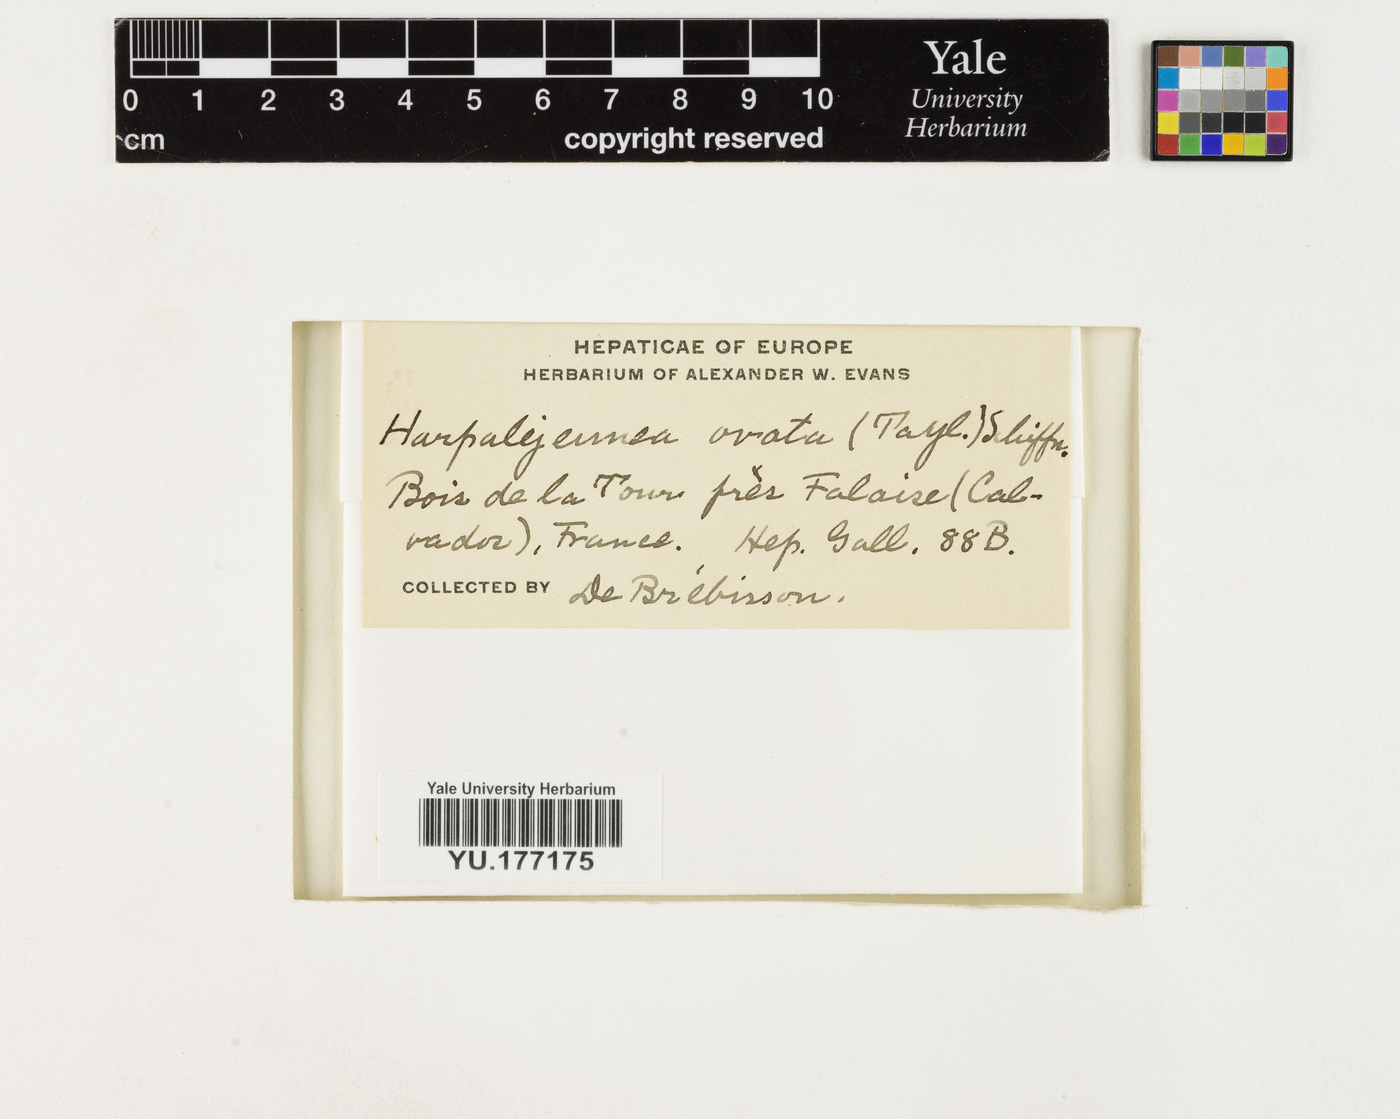 0 1 2 3 4 5 6 7 8 9 10
cm
copyright reserved
Yale
University
Herbarium
HEPATICAE OF EUROPE
HERBARIUM OF ALEXANDER W. EVANS
Harpalejeunea ovata (Tayl.) Schiffn.
Bois de la Tour près Falaise (Cal-
vados), France. Hep. Gall. 88 B.
COLLECTED BY De Brébisson.
Yale University Herbarium
YU.177175